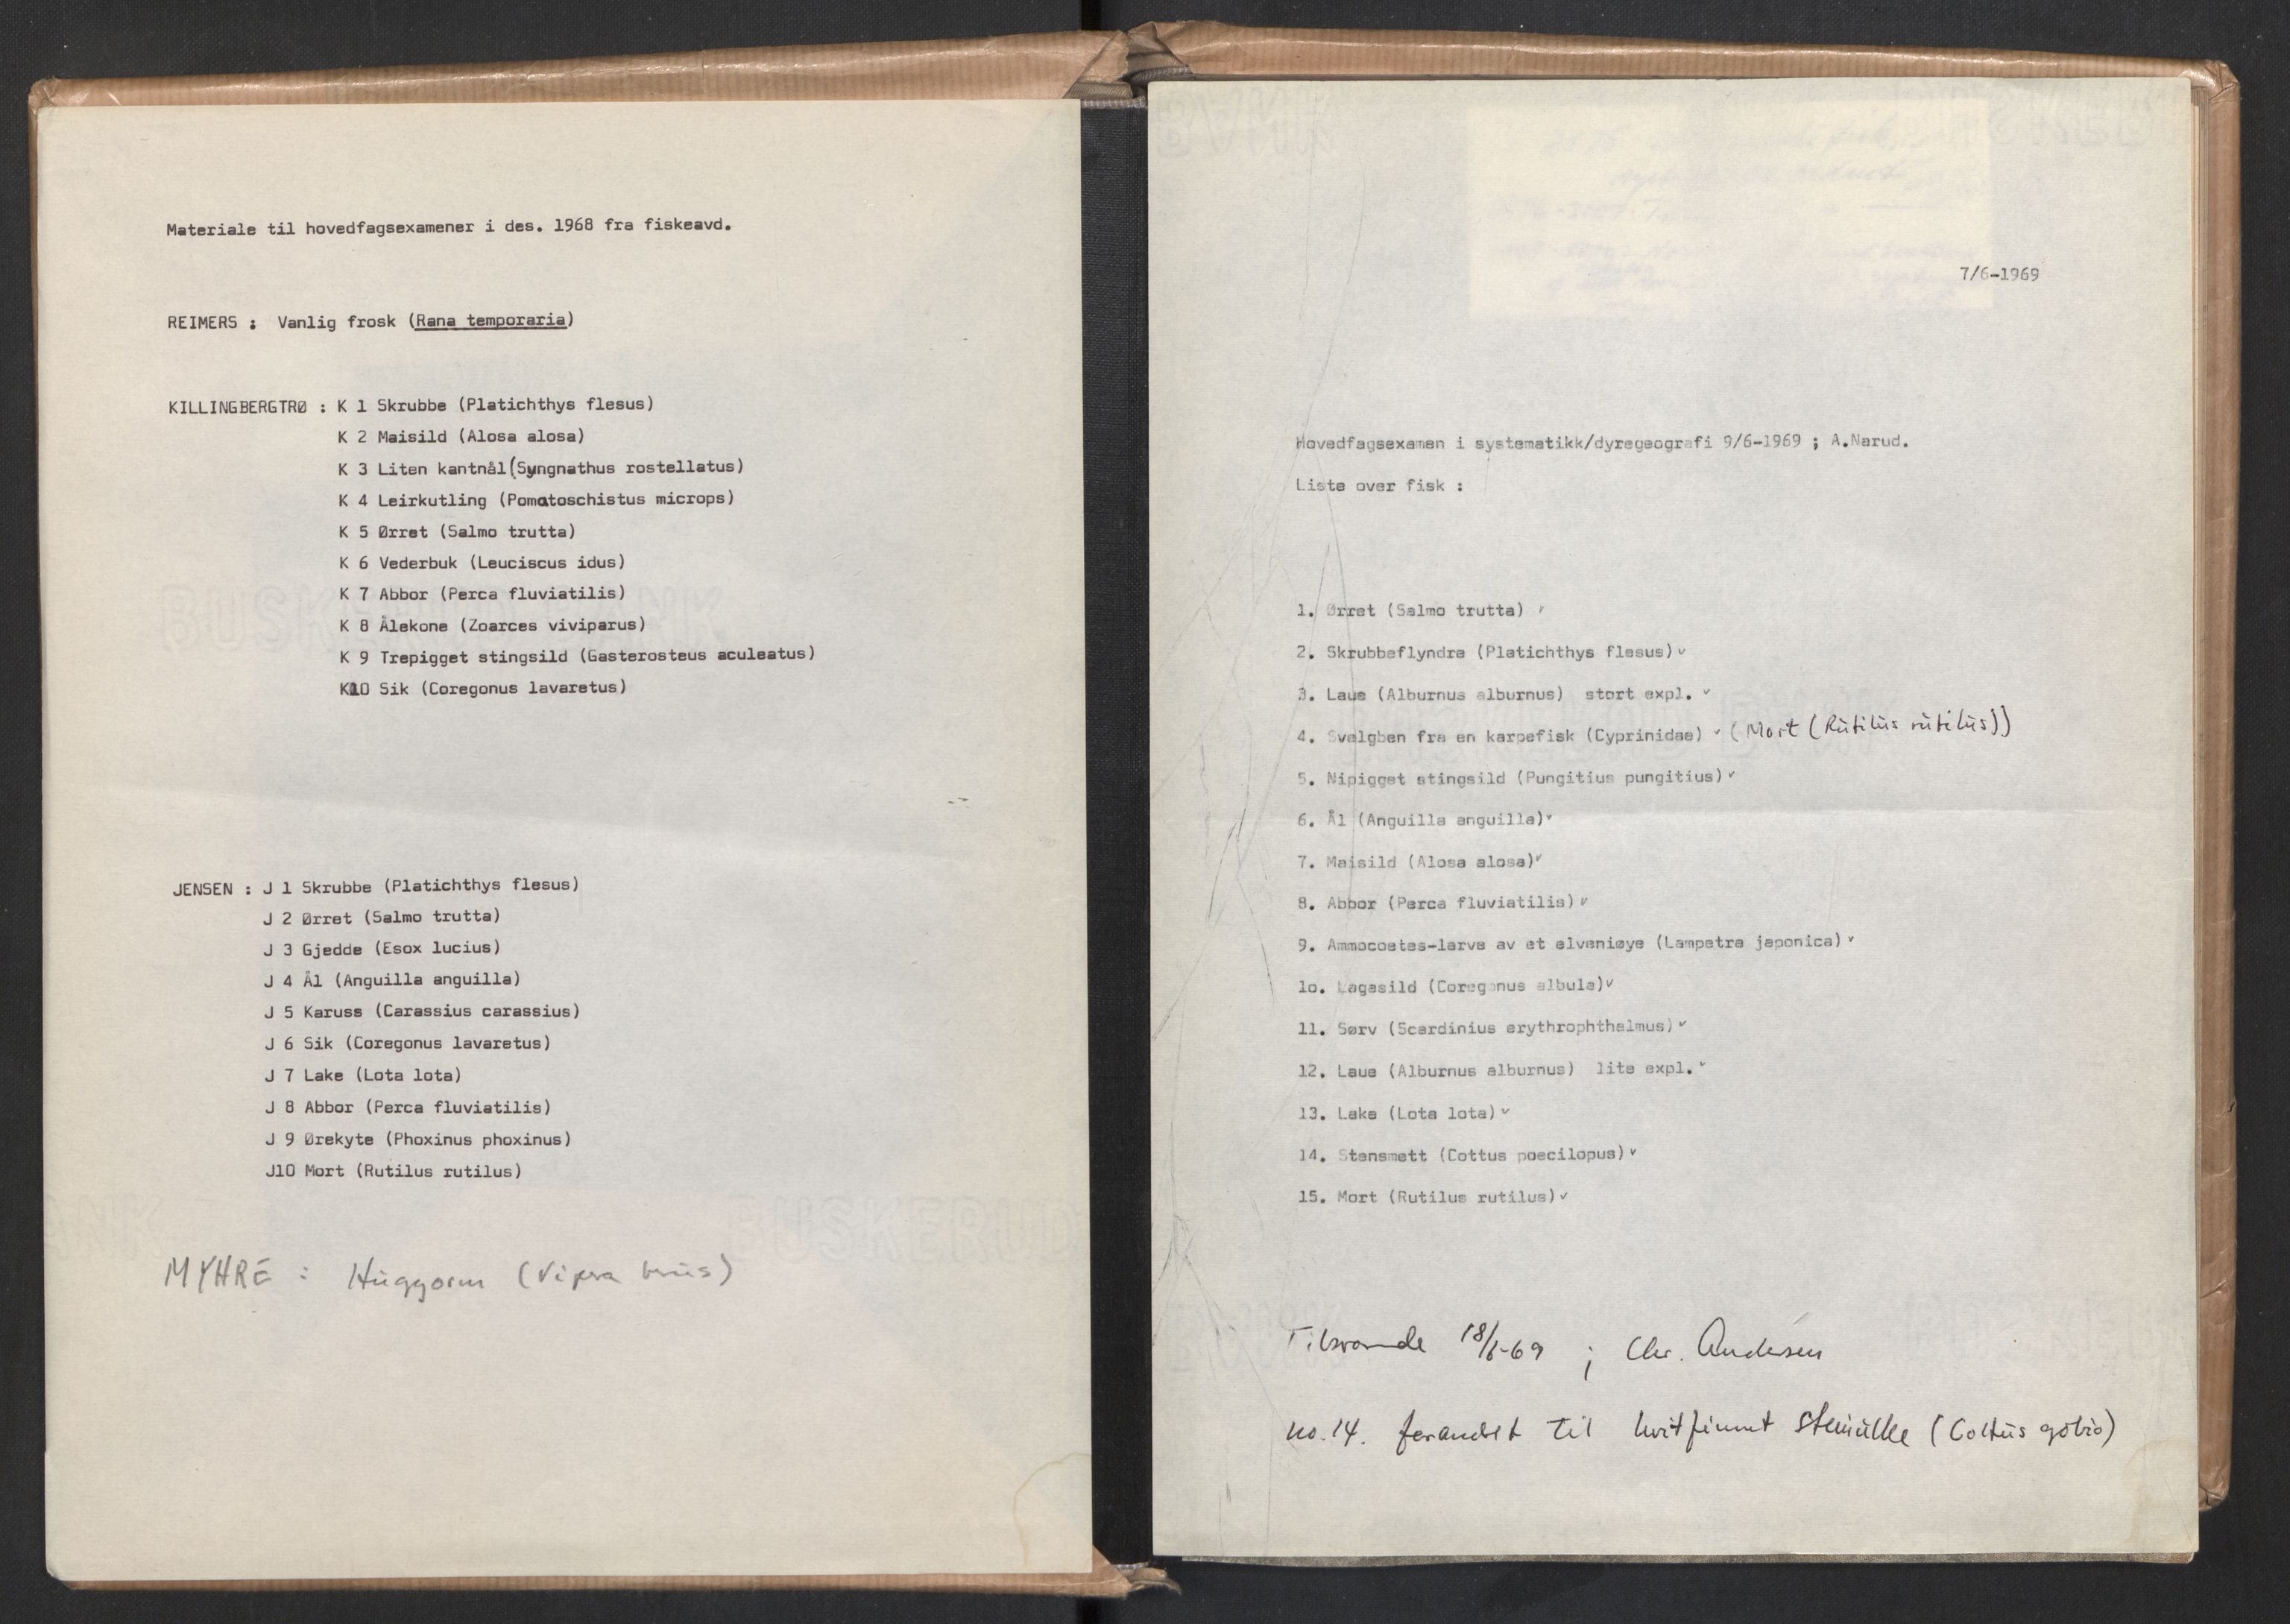 Materiale til hovedfagsexamener i des. 1968 fra fiskeavd.
REIMERS : Vanlig frosk (Rana temporaria)
KILLINGBERGTRØ : K 1 Skrubbe (Platichthys flesus)
K 2 Maisild (Alosa alosa)
K 3 Liten kantnål (Syngnathus rostellatus)
K 4 Leirkutling (Pomatoschistus microps)
K 5 Ørret (Salmo trutta)
K 6 Vederbuk (Leuciscus idus)
K 7 Abbor (Perca fluviatilis)
K 8 Ålekone (Zoarces viviparus)
K 9 Trepigget stingsild (Gasterosteus aculeatus)
K10 Sik (Coregonus lavaretus)
JENSEN : J 1 Skrubbe (Platichthys flesus)
J 2 Ørret (Salmo trutta)
J 3 Gjedde (Esox lucius)
J 4 Ål (Anguilla anguilla)
J 5 Karuss (Carassius carassius)
J 6 Sik (Coregonus lavaretus)
J 7 Lake (Lota lota)
J 8 Abbor (Perca fluviatilis)
J 9 Ørekyte (Phoxinus phoxinus)
J10 Mort (Rutilus rutilus)
BUSKERUD
MYHRE : Huggorm (Vipera berus)
7/6-1969
Hovedfagsexamen i systematikk/dyregeografi 9/6-1969 ; A.Narud.
Liste over fisk :
1. Ørret (Salmo trutta)
2. Skrubbeflyndre (Platichthys flesus) ✓
3. Laue (Alburnus alburnus) stort expl. ✓
4. Svelgben fra en karpefisk (Cyprinidae) ✓ (Mort (Rutilus rutilus))
5. Nipigget stingsild (Pungitius pungitius) ✓
6. Ål (Anguilla anguilla) ✓
7. Maisild (Alosa alosa) ✓
8. Abbor (Perca fluviatilis) ✓
9. Ammocoetes-larve av et elveniøye (Lampetra japonica) ✓
lo. Lagesild (Coregonus albula) ✓
11. Sørv (Scardinius erythrophthalmus) ✓
12. Laue (Alburnus alburnus) lite expl. ✓
13. Lake (Lota lota) ✓
14. Stensmett (Cottus poecilopus) ✓
15. Mort (Rutilus rutilus) ✓
Tilsvarende 18/6-69 ; Chr. Andersen
no. 14. forandret til hvitfinnet steinulke (Cottus gobio)